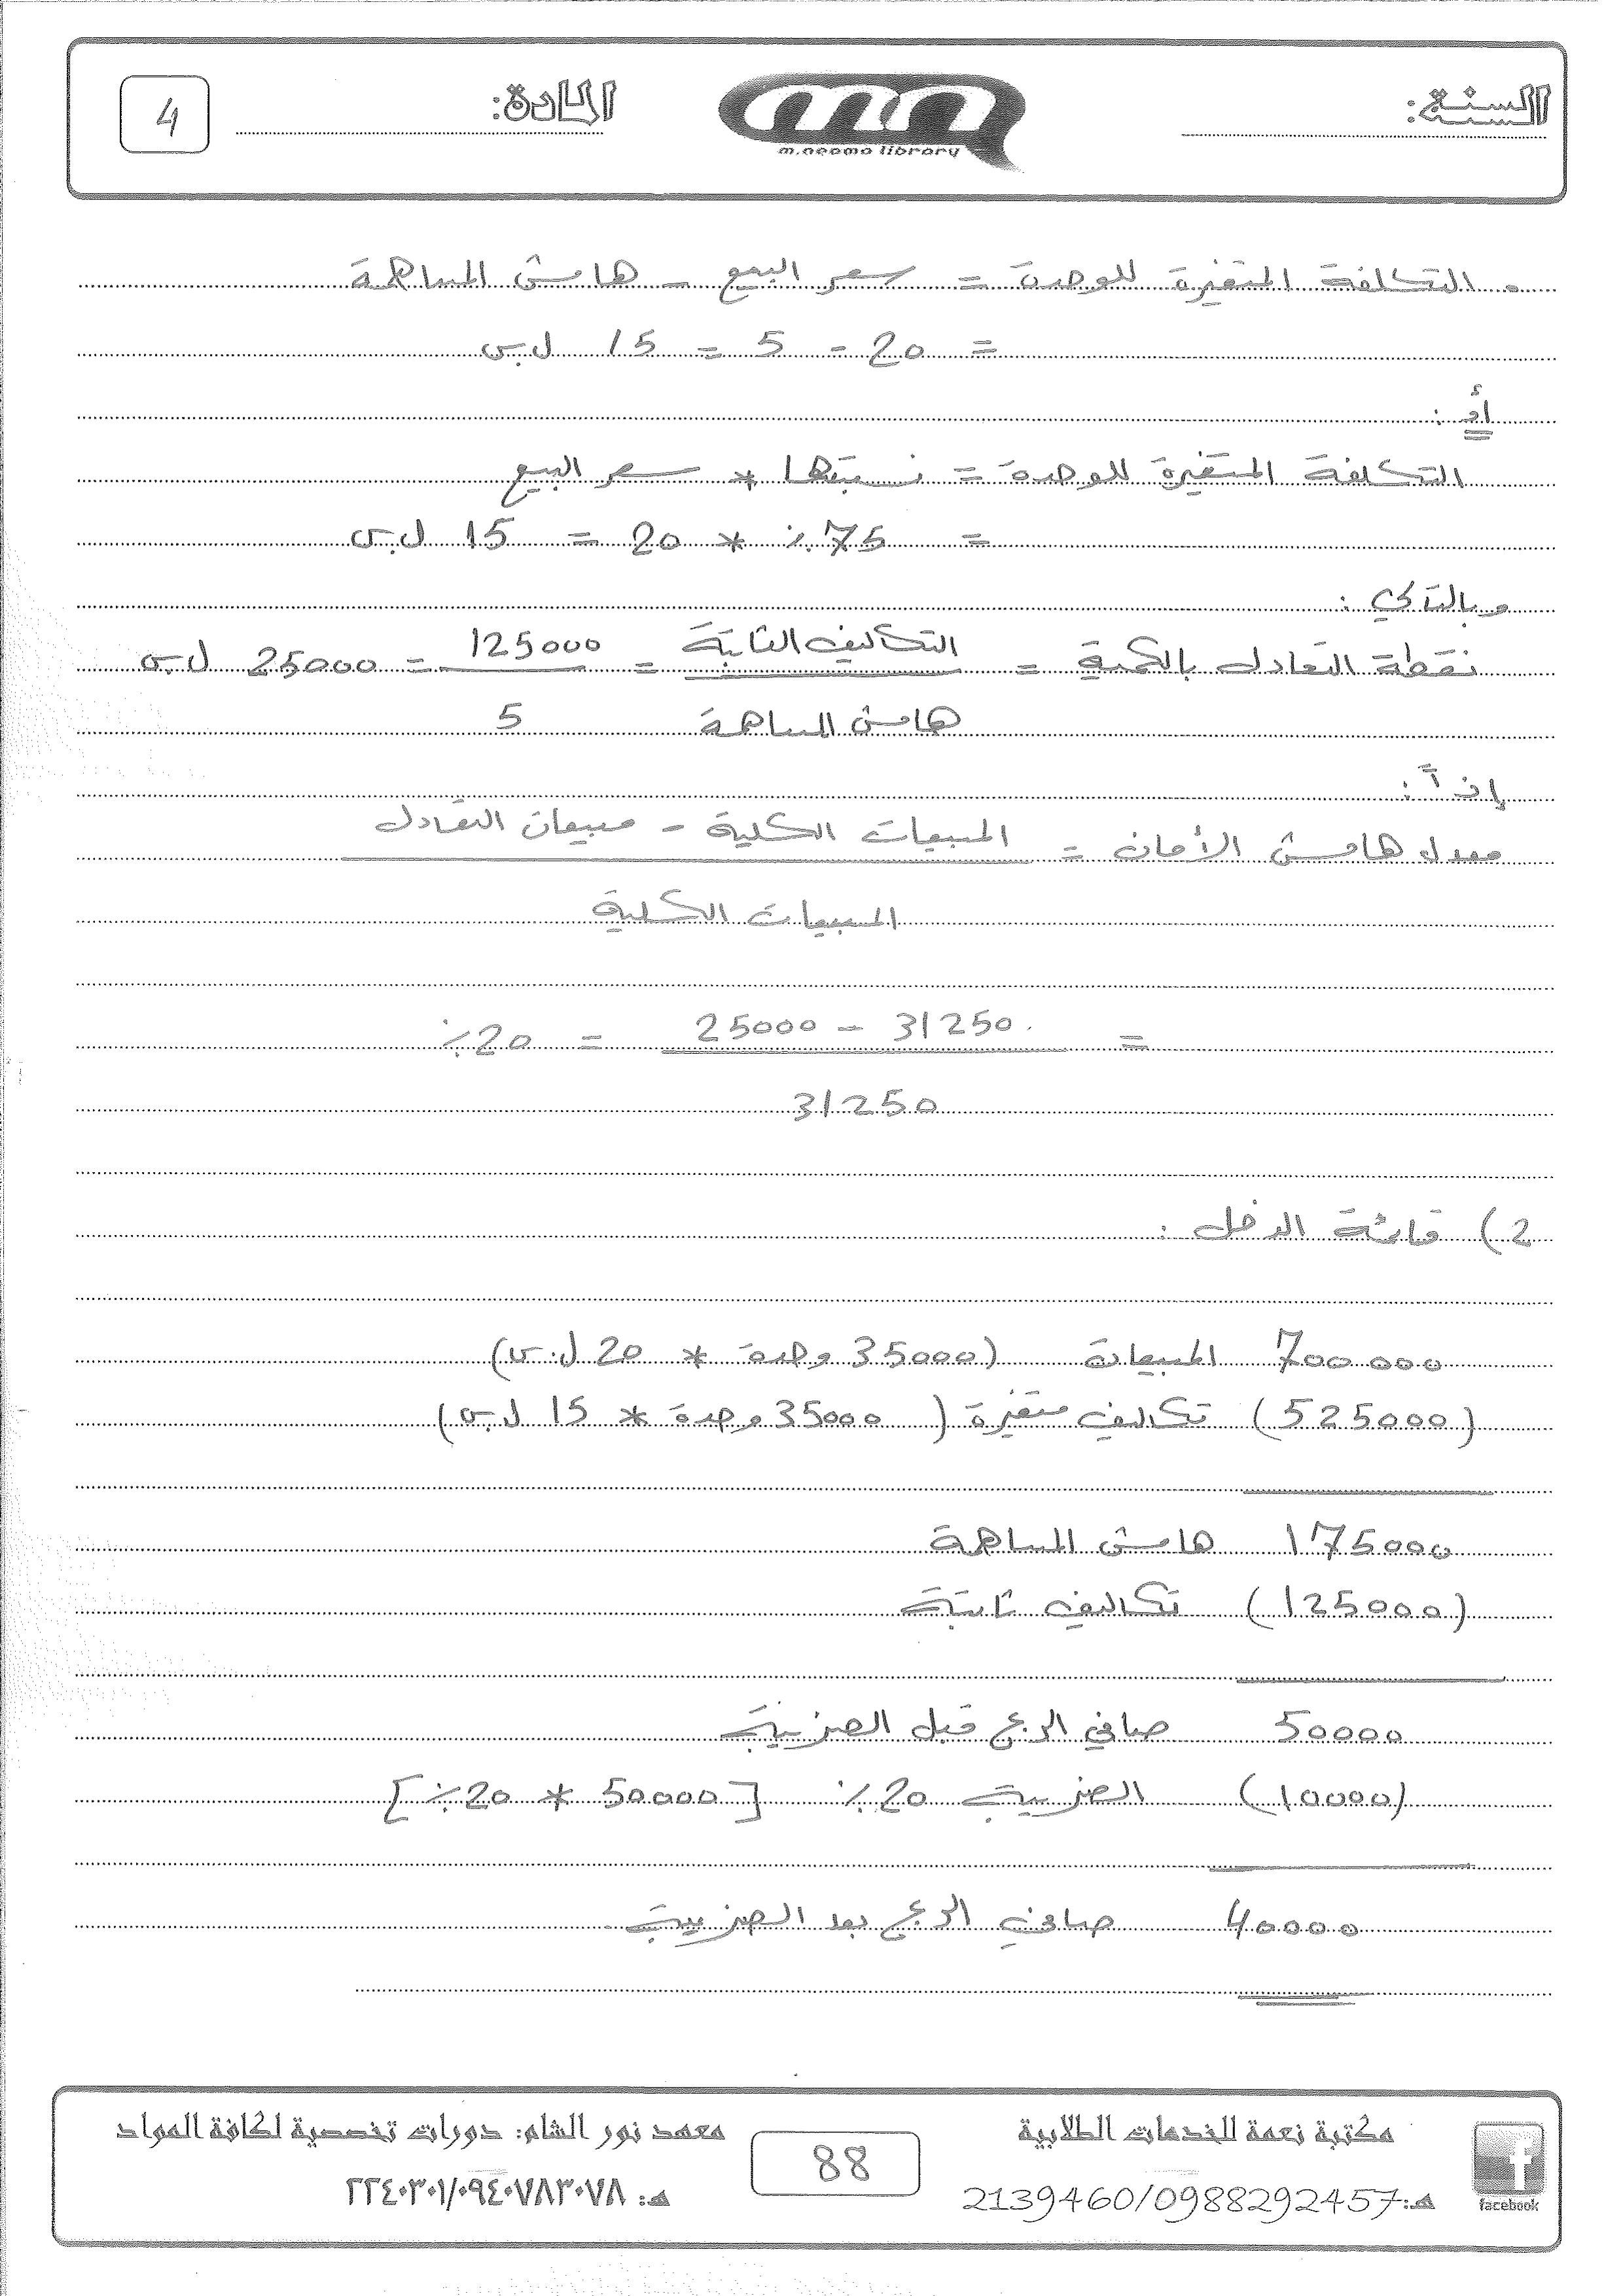 السنة:
mn
m.neema library
المادة:
4
• التكلفة المتغيرة للوحدة = سعر البيع - هامش المساهمة
= 20 - 5 = 15 ل.س
أو :
التكلفة المتغيرة للوحدة = نسبتها * سعر البيع
= 75 ٪ * 20 = 15 ل.س
وبالتالي :
نقطة التعادل بالكمية = التكاليف الثابتة = 125000 = 25000 ل.س
هامش المساهمة 5
إذاً :
معدل هامش الأمان = المبيعات الكلية - مبيعات التعادل
المبيعات الكلية
= 31250 - 25000 = 20 ٪
31250
2) قائمة الدخل :
700000 المبيعات (35000 وحدة * 20 ل.س)
(525000) تكاليف متغيرة (35000 وحدة * 15 ل.س)
175000 هامش المساهمة
(125000) تكاليف ثابتة
50000 صافي الربح قبل الضريبة
(10000) الضريبة 20 ٪ [50000 * 20 ٪]
40000 صافي الربح بعد الضريبة
مكتبة نعمة للخدمات الطلابية
هـ: 2139460/0988292457
facebook
88
معهد نور الشام: دورات تخصصية لكافة المواد
هـ: ٢٢٤٠٣٠١/٠٩٤٠٧٨٣٠٧٨